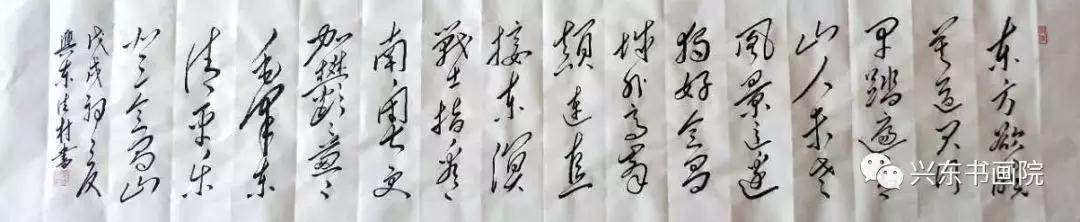 东方欲晓
莫道君行
早踏遍青
山人未老
風景这邊
獨好会昌
城外高峰
颠连直
接东溟
戰士指看
南粤更
加鬱鬱葱葱
毛泽东
清平乐
会昌山
戊戌初夏
興东佳村書
兴东书画院